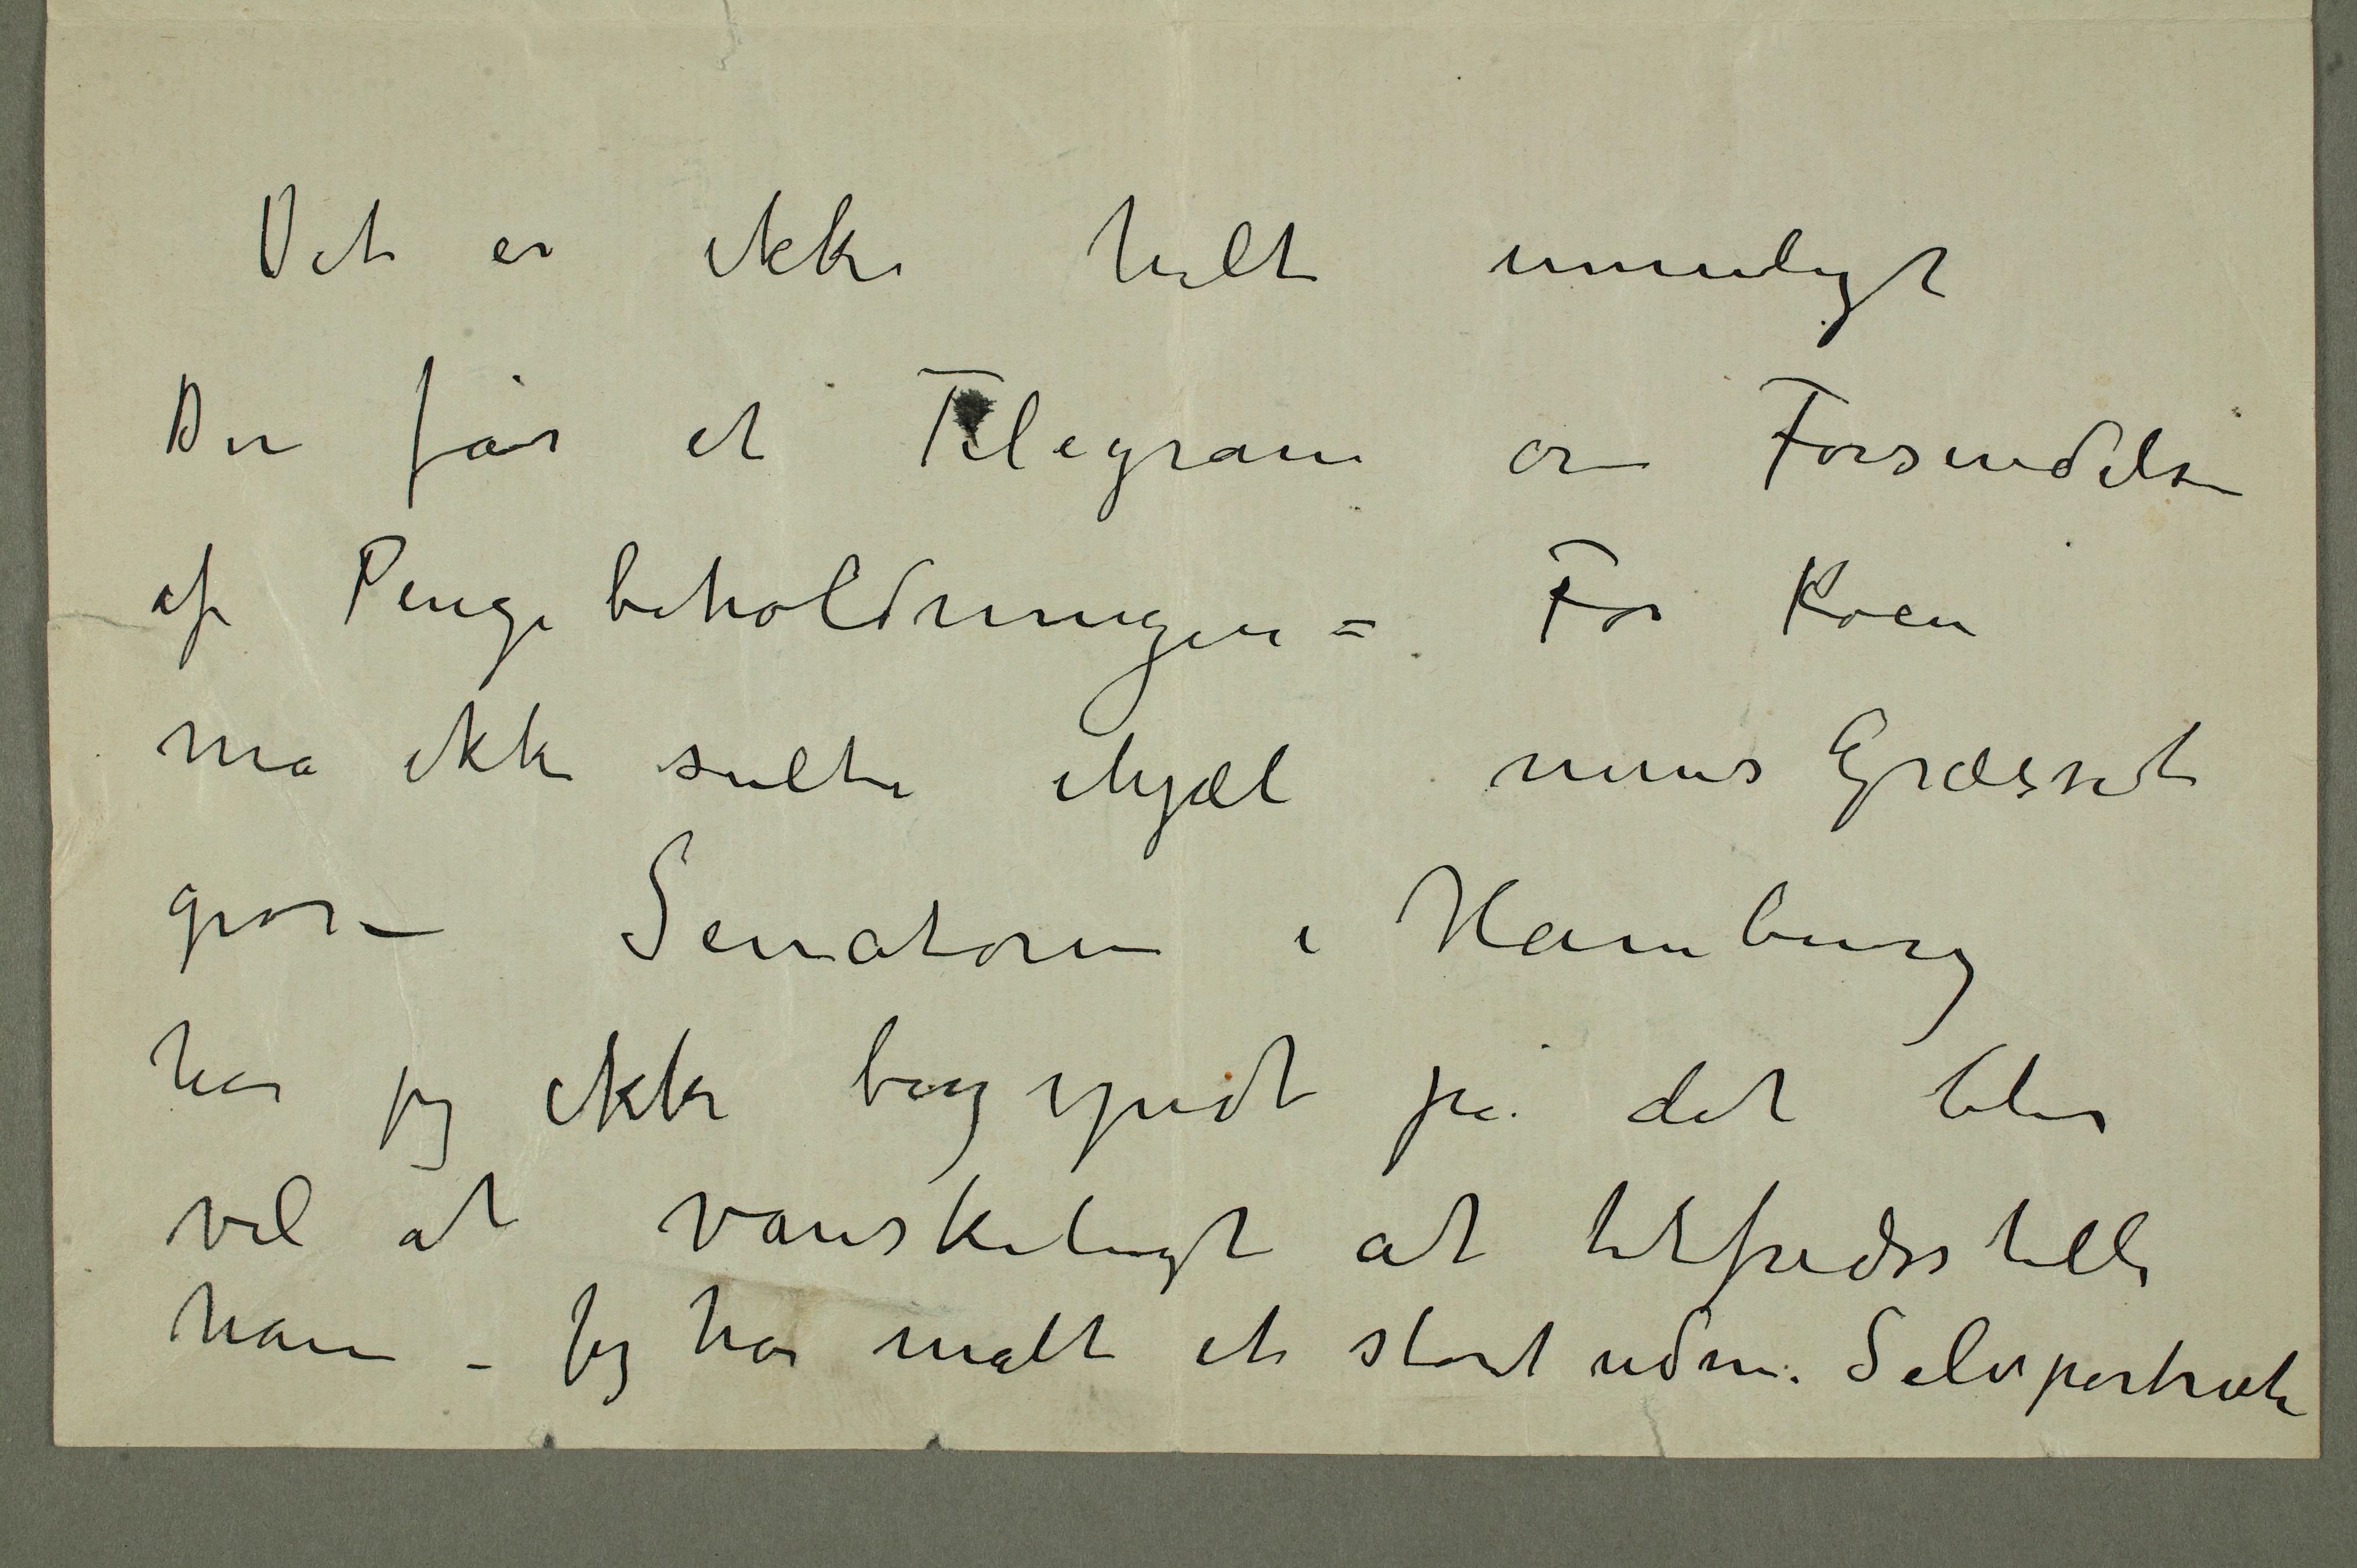 Det er ikke helt umuligt
Du får et Telegram om Forsendelse
af Pengebeholdningen = For Koen
må ikke sulte ihjæl mens Græsset
gror – Senatoren i Hamburg
har jeg ikke begyndt på det blir
vel at vanskeligt at tilfredsstille
ham – Jeg har malt et stort udm. Selvportræt